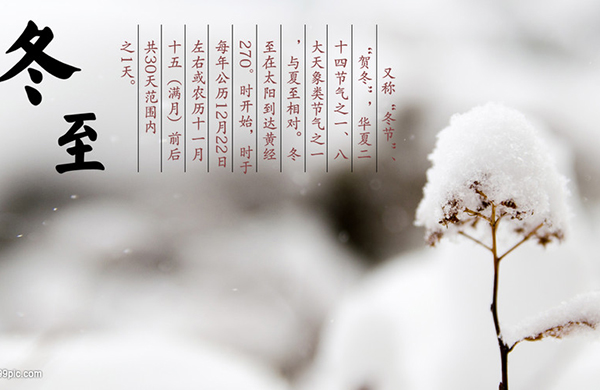 冬至
又称“冬节”、
“贺冬”，华夏二
十四节气之一、八
大天象类节气之一
，与夏至相对。冬
至在太阳到达黄经
270。时开始，时于
每年公历12月22日
左右或农历十一月
十五（满月）前后
共30天范围内
之1天。
99pic.com